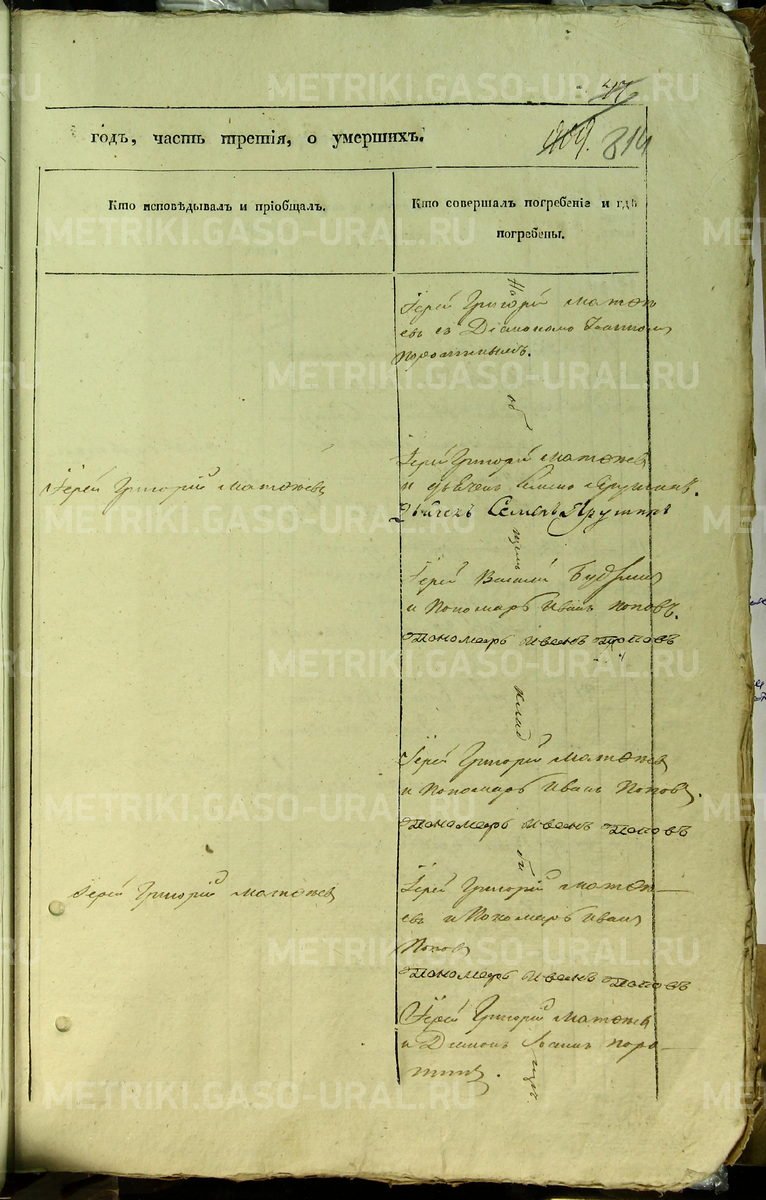 47
годъ, часть третія, о умершихъ.
409. 814
Кто исповѣдывалъ и пріобщалъ.
Кто совершалъ погребеніе и гдѣ
погребены.
На
Іерей Григорій Матѳѣ
евъ съ Діакономъ Іоанномъ
об
Іерей Григорій Матѳѣевъ
Іерей Григорій Матѳѣевъ
и дьячекъ Семенъ Ярушинъ.
дьячекъ Семенъ Ярушинъ
щемъ
Іерей Василій
и Пономарь Иванъ Поповъ.
Пономарь Иванъ Поповъ
клад
Іерей Григорій Матѳѣевъ
и Пономарь Иванъ Поповъ.
Пономарь Иванъ Поповъ
би
Іерей Григорій Матѳѣевъ
Іерей Григорій Матѳѣ
евъ и Пономарь Иванъ
Поповъ
Пономарь Иванъ Поповъ
Іерей Григорій Матѳѣевъ
и Діаконъ Іоаннъ Поро
щѣ.
METRIKI.GASO-URAL.RU